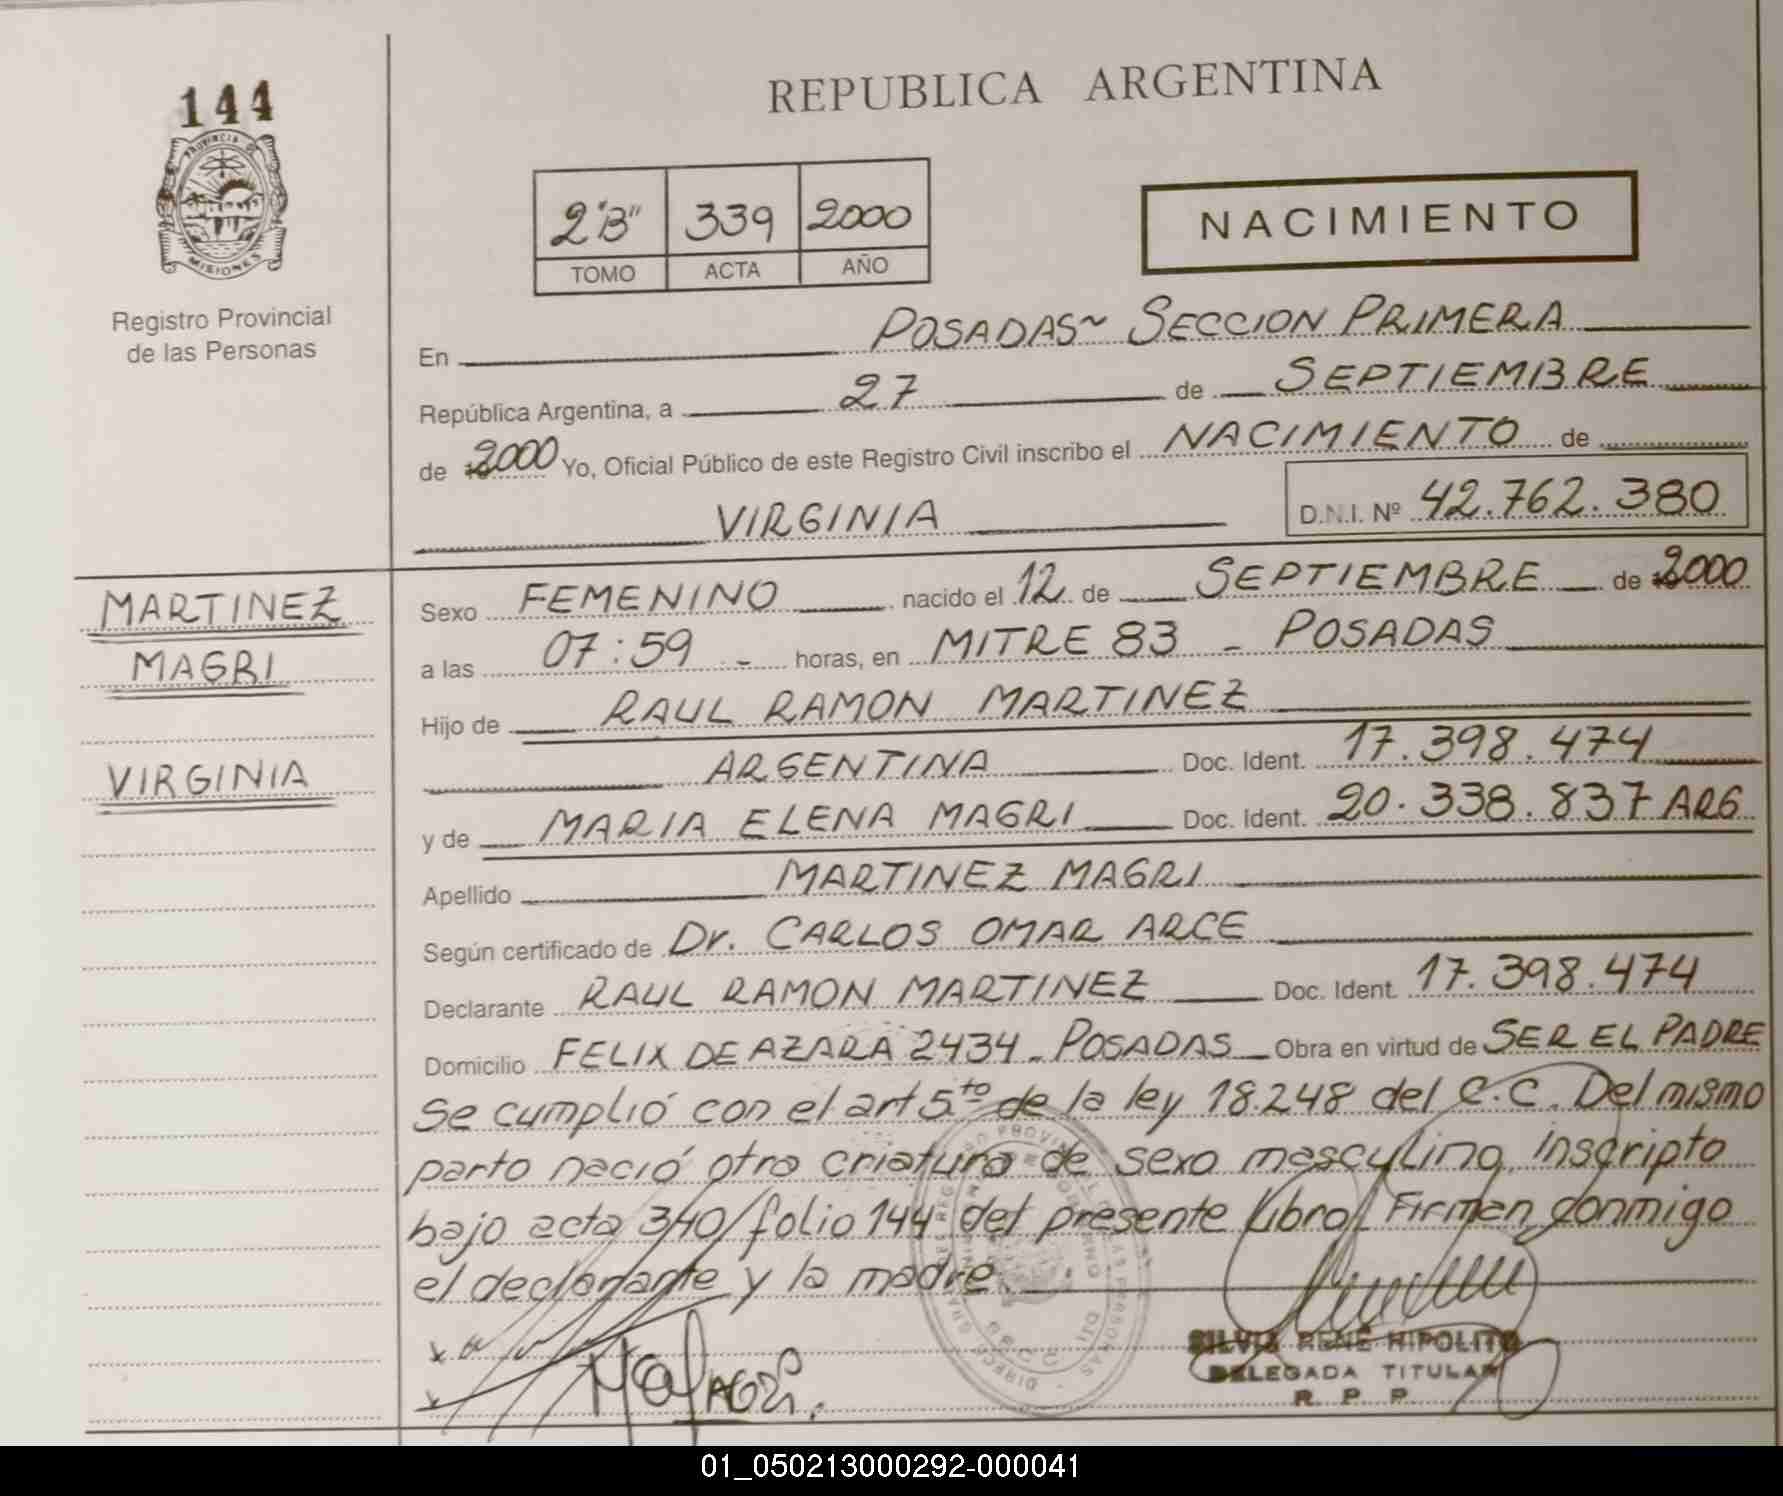 144
PROVINCIA DE
MISIONES
Registro Provincial
de las Personas
REPUBLICA ARGENTINA
2"B" 339 2000
TOMO ACTA AÑO
NACIMIENTO
En POSADAS~ SECCION PRIMERA
República Argentina, a 27 de SEPTIEMBRE
de 2000 Yo, Oficial Público de este Registro Civil inscribo el NACIMIENTO de
VIRGINIA D.N.I. Nº 42.762.380
MARTINEZ
MAGRI
VIRGINIA
Sexo FEMENINO nacido el 12 de SEPTIEMBRE de 2000
a las 07:59 - horas, en MITRE 83 - POSADAS
Hijo de RAUL RAMON MARTINEZ
ARGENTINA Doc. Ident. 17.398.474
y de MARIA ELENA MAGRI Doc. Ident. 20.338.837 ARG
Apellido MARTINEZ MAGRI
Según certificado de Dr. CARLOS OMAR ARCE
Declarante RAUL RAMON MARTINEZ Doc. Ident. 17.398.474
Domicilio FELIX DE AZARA 2434 - POSADAS Obra en virtud de SER EL PADRE
Se cumplió con el art 5to de la ley 18.248 del C.C. Del mismo
parto nació otra criatura de sexo masculino, inscripto
bajo acta 340/folio 144 del presente libro. Firman conmigo
el declarante y la madre.
SILVIA RENE HIPOLITO
DELEGADA TITULAR
R. P. P.
01_050213000292-000041